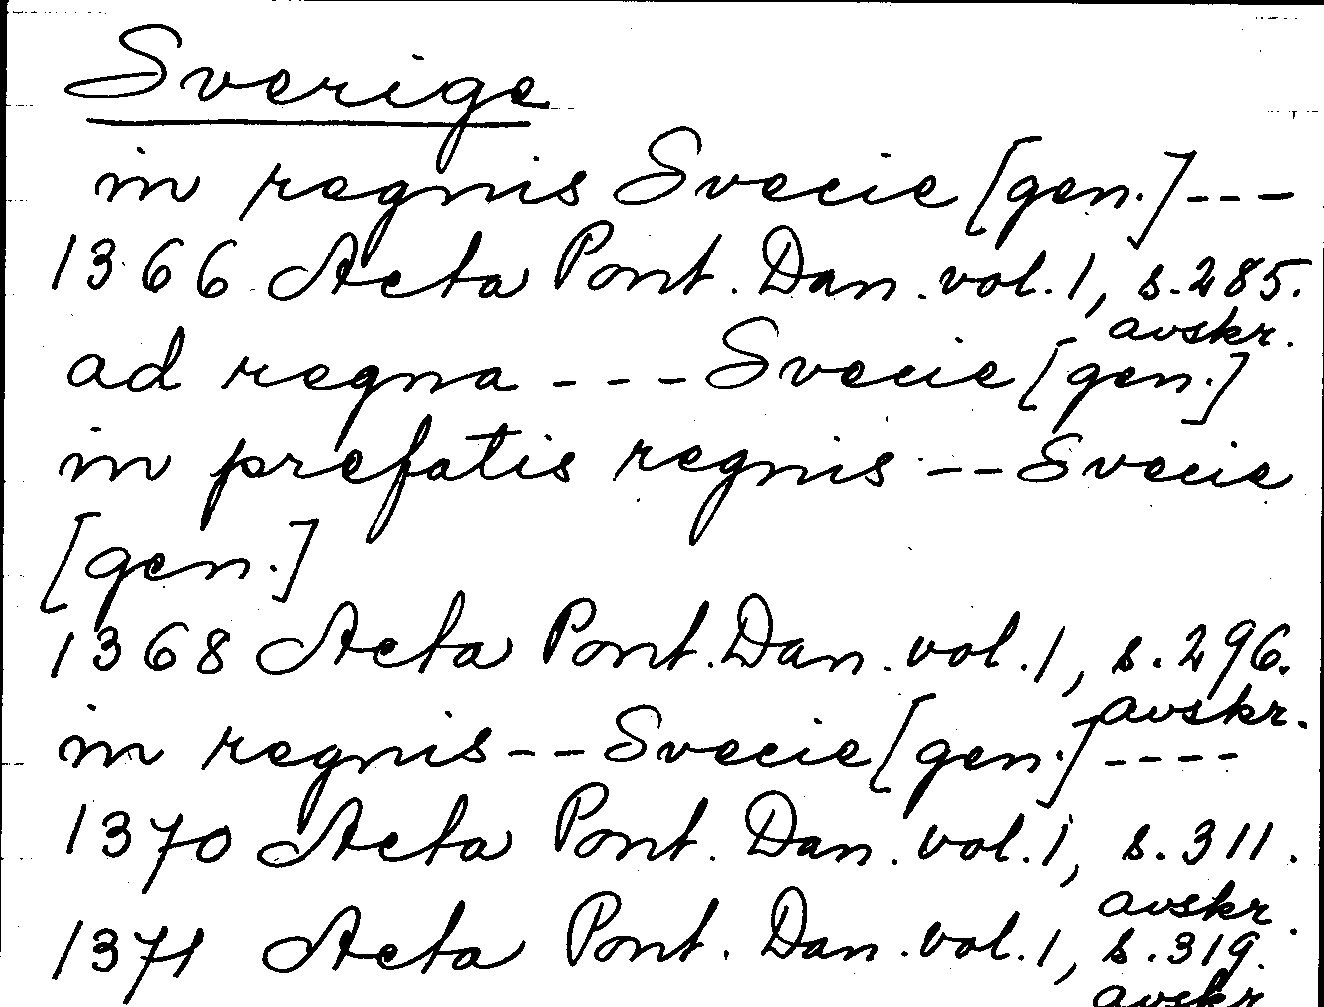 Sverige
in regnis Svecie [gen.] ---
1366 Acta Pont. Dan. vol. 1, s. 285.
avskr.
ad regna --- Svecie [gen.]
in prefatis regnis -- Svecie
[gen.]
1368 Acta Pont. Dan. vol. 1, s. 296.
avskr.
in regnis -- Svecie [gen.] ----
1370 Acta Pont. Dan. vol. 1, s. 311.
avskr.
1371 Acta Pont. Dan. vol. 1, s. 319.
avskr